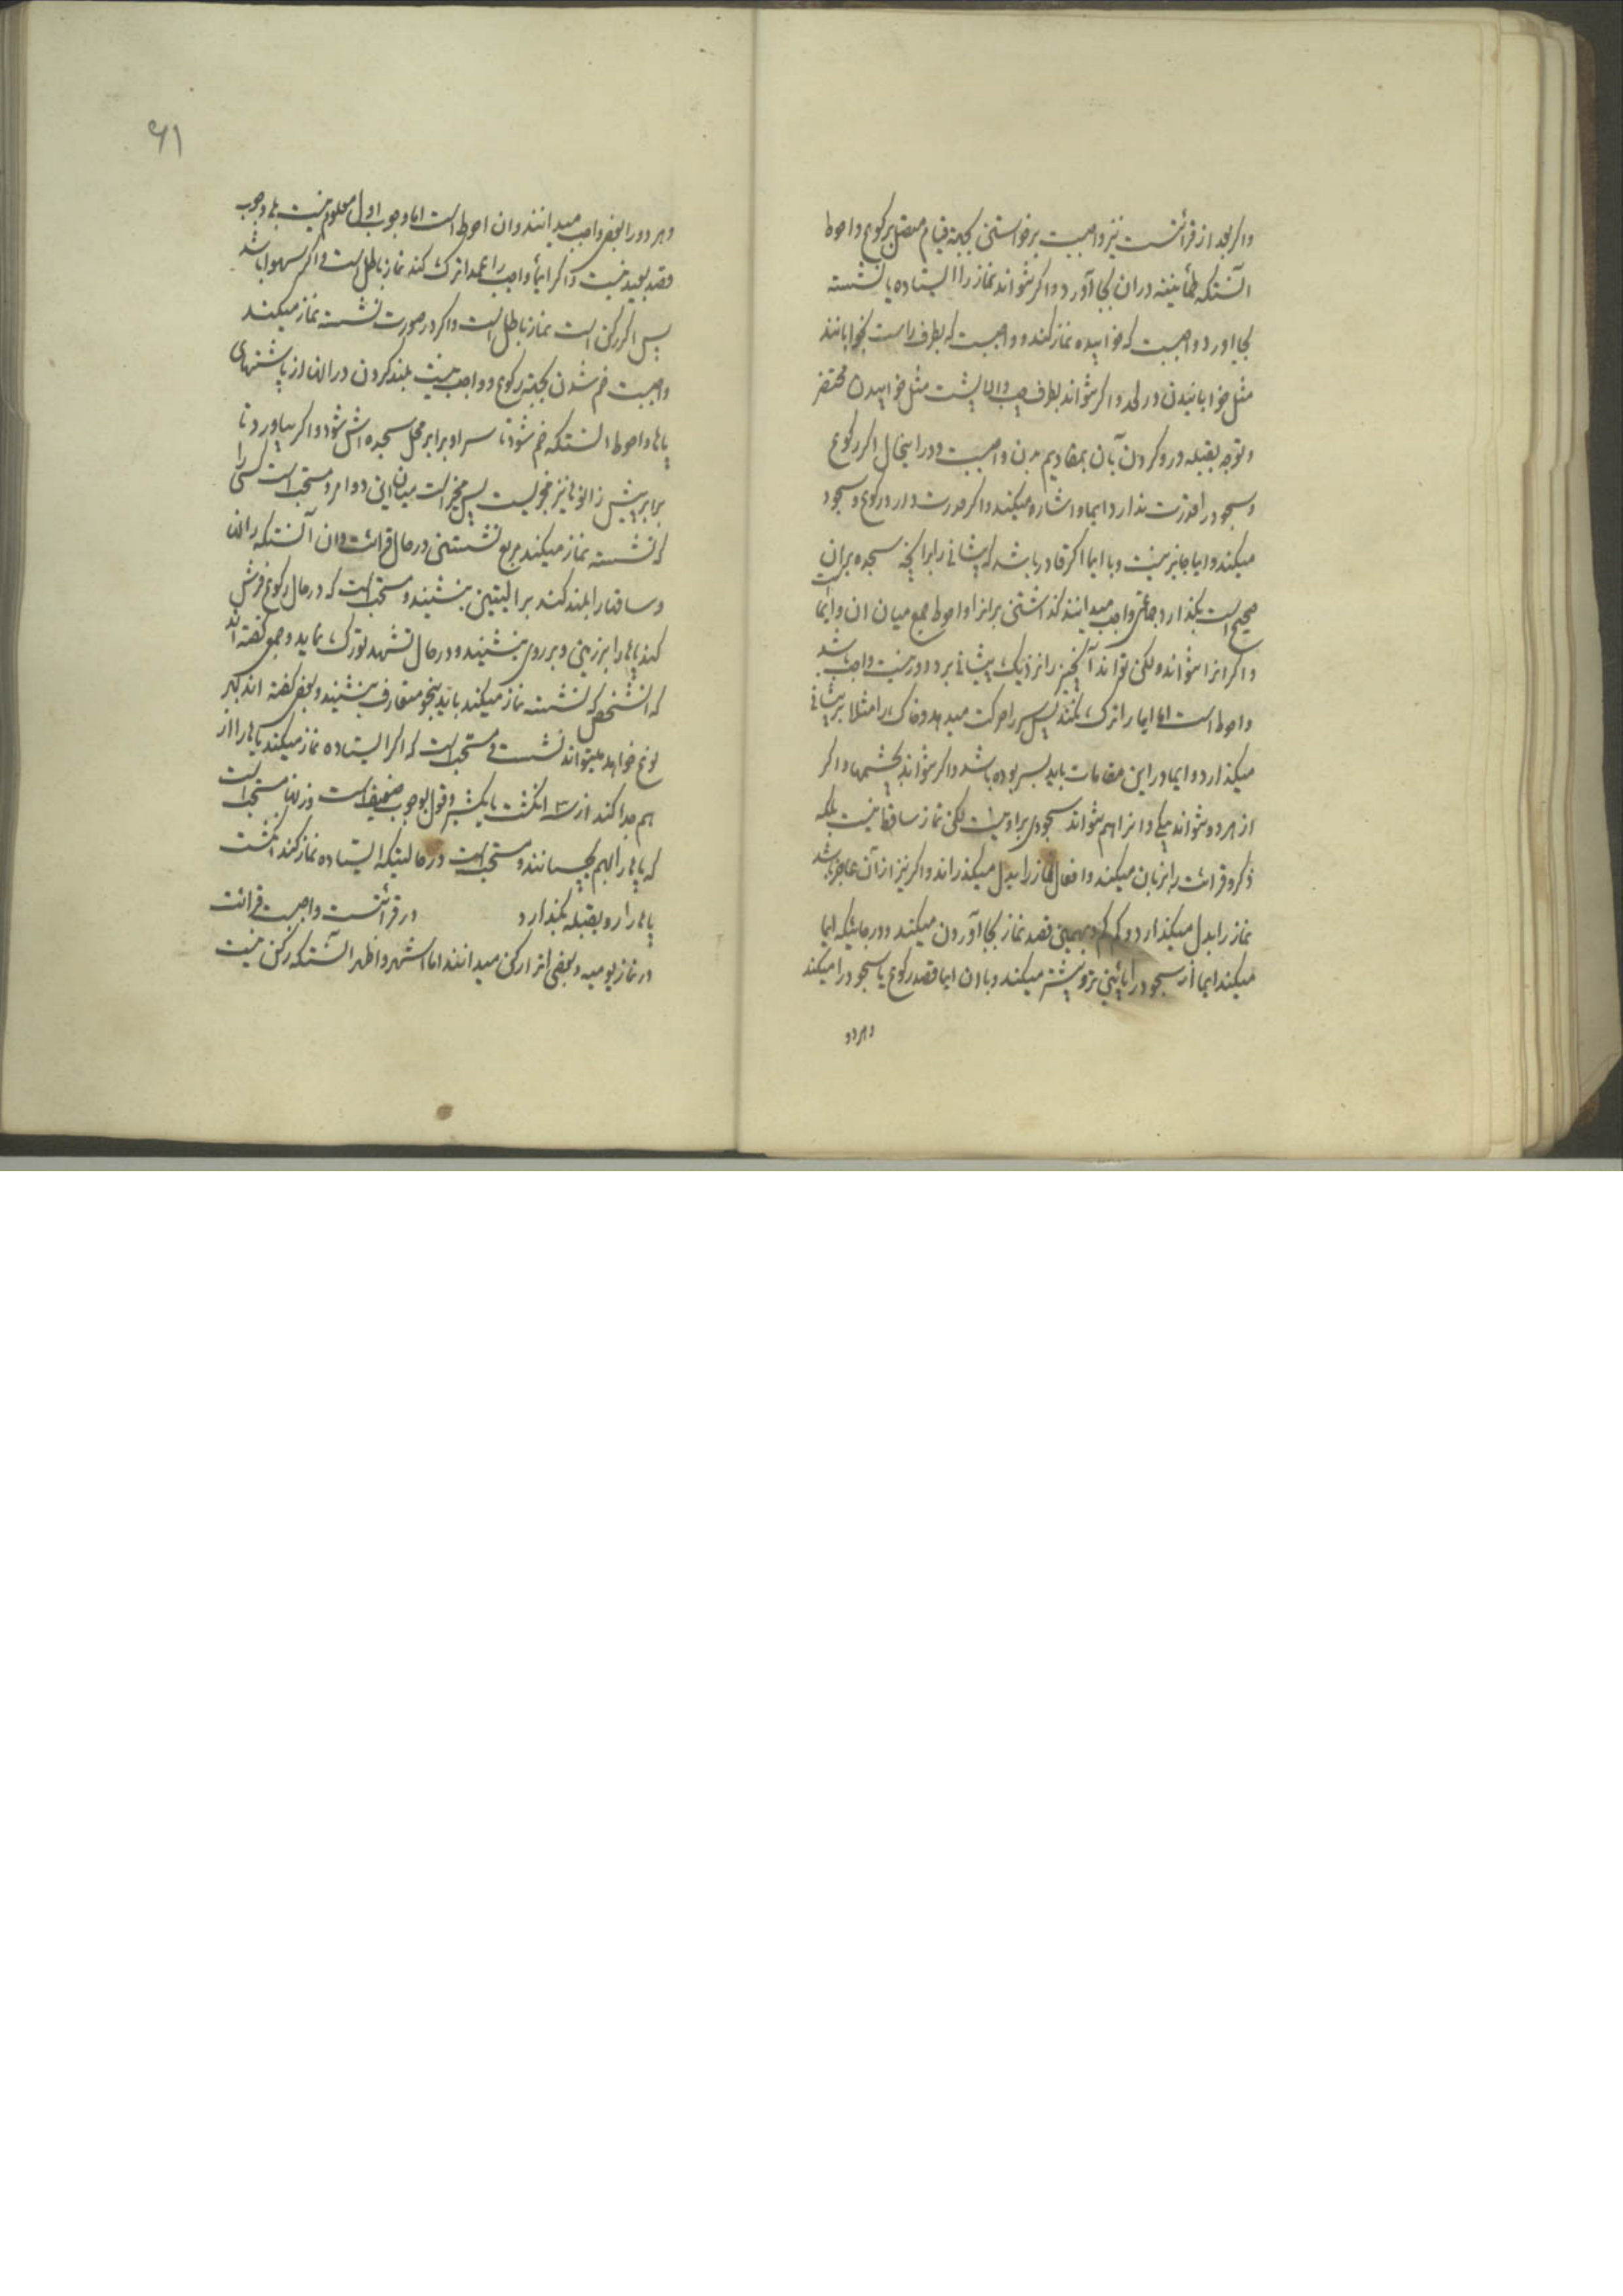 واکر بعد از قرائتست نیز واجبست برخواستن بجهة قیام متصل برکوع واحوط
انستکه طمأنینه دران بجا آورد واکر نتواند نماز را ایستاده یا نشسته
بجا اورد واجبست که خوابیده نماز کند و واجبست که بطرف راست بخوابانند
مثل خوابانیدن در لحد واکر نتواند بطرف چپ والا بپشت مثل خوابیدن محتضر
وتوجه بقبله ورو کردن بآن بمقادیم بدن واجبست ودر اینحال اکر رکوع
وسجود را قدرت ندارد ایما واشاره میکند واکر قدرت دارد رکوع وسجود
میکند وایما جایز نیست وبا ایما اکر قادر باشد که پیشانی را برانچه سجده بران
صحیح است بکذارد جماعتی واجب میدانند کذاشتن برانرا واحوط جمع میان ان وایما است
واکر انرا نتواند ولکن تواند آنچیز را نزدیک پیشانی برد دور نیست واجب باشد
واحوط است اما ایما را ترک نکند پس سر را حرکت میدهد وخاک را مثلا بر پیشانی
میکذارد وایما در این مقامات باید بسر بوده باشد واکر نتواند بچشمها واکر
از هر دو نتواند بیکی وانرا هم نتواند سجودی براو نیست لکن نماز ساقط نیست بلکه
ذکر وقرائت را بزبان میکند وافعال نماز را بدل میکذراند واکر نیز از آن عاجز باشد
نماز را بدل میکذارد وکم کم وبهمین قصد نماز بجا آوردن میکند ودر جائیکه ایما
میکند ایما از سجود را پائین تر وبیشتر میکند وبا ان ایما قصد رکوع یا سجود را میکند
وهر دو
۶۱
وهر دو را بعض واجب میدانند وان احوط است اما وجوب اول معلوم نیست بلی وجوب
قصد بعید نیست واکر ایمأ واجب را عمدا ترک کند نماز باطل است واکر سهوا باشد
پس اکر رکن است نماز باطل است واکر در صورت نشسته نماز میکند
واجبست خم شدن بجهة رکوع وواجب نیست بلند کردن در الفا از پاشنهای
پاها واحوط انستکه خم شود تا سر او برابر محل سجده اش شود واکر بیاورد تا
برابر پیش زانوها نیز مجزیست پس مخیر است میان این دو امر ومستحب است کسی را
که نشسته نماز میکند مربع نشستن در حال قرائت وان آنستکه رانها
وساقها را بلند کند بر الیتین بنشیند ومستحب است که در حال رکوع فرش
کند پاها را بر زمین وبر روی بنشیند ودر حال تشهد تورک نماید وجمعی کفته اند
که انشخص که نشسته نماز میکند باید بنحو متعارف بنشیند وبعض کفته اند بهر
نوع خواهد میتواند نشست ومستحب است که اکر ایستاده نماز میکند پاها را از
هم جدا کند از سه انکشت تا یکشبر وقول بوجوب ضعیف است وزنها مستحب است
که پاها را بهم بچسبانند ومستحب است در حالیتیکه ایستاده نماز کند انکشت
پاها را رو بقبله بکذارد در قرائتست واجبست قرائت
در نماز یومیه وبعضی انرا رکن میدانند اما اشهر واظهر انستکه رکن نیست